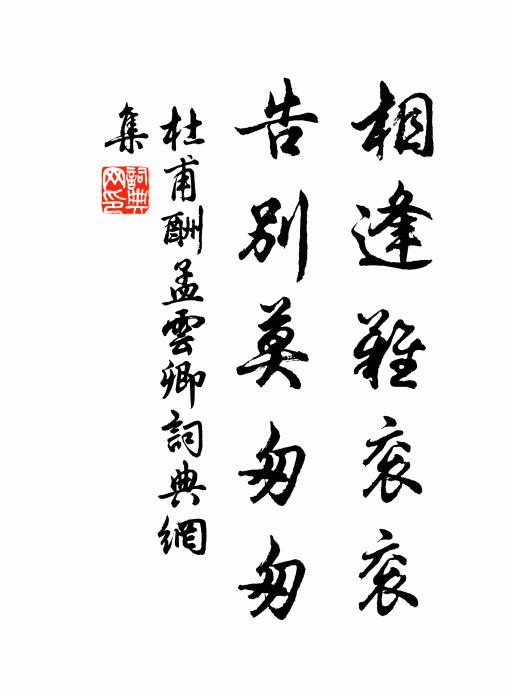 相逢難衮衮
告別莫匆匆
杜甫酬孟雲卿詞典網
集
詞典
网印